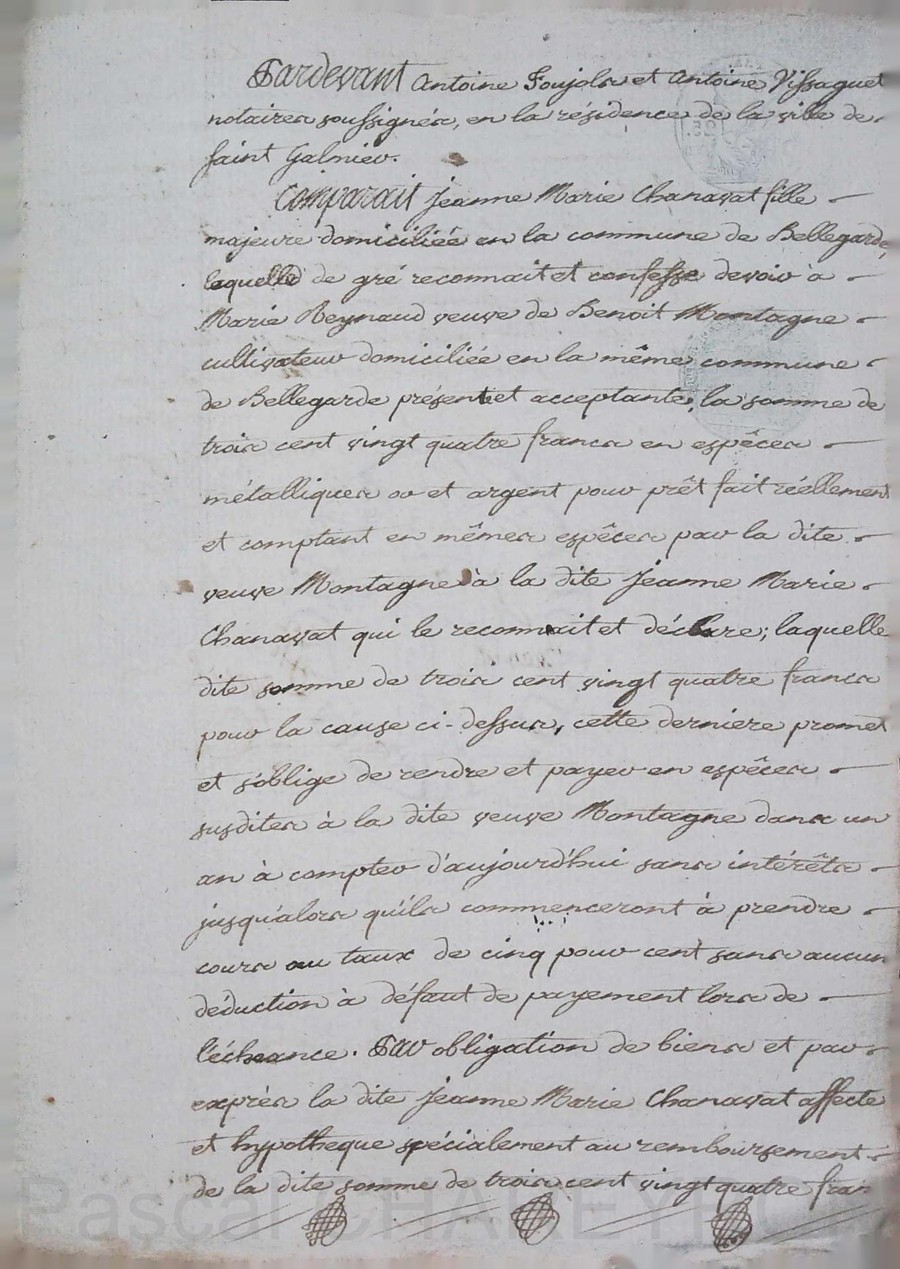 Pardevant Antoine Foujols et Antoine Vissaguet
notaires soussignés, en la résidence de la ville de
saint Galmier.
Comparait Jeanne Marie Chanavat fille
majeure domiciliée en la commune de Bellegarde,
laquelle de gré reconnait et confesse devoir à
Marie Reynaud veuve de Benoit Montagne
cultivateur domiciliée en la même commune
de Bellegarde présente et acceptante, la somme de
trois cent vingt quatre francs en espêces
métalliques or et argent pour prêt fait réellement
et comptant en mêmes espêces par la dite
veuve Montagne à la dite Jeanne Marie
Chanavat qui le reconnait et déclare; laquelle
dite somme de trois cent vingt quatre francs
pour la cause ci-dessus, cette derniere promet
et s'oblige de rendre et payer en espêces
susdites à la dite veuve Montagne dans un
an à compter d'aujourd'hui sans intérêts
jusqu'alors qu'ils commenceront à prendre
cours au taux de cinq pour cent sans aucun
deduction à défaut de payement lors de
l'échéance. Par obligation de biens et par
exprès la dite Jeanne Marie Chanavat affecte
et hypotheque spécialement au remboursement
de la dite somme de trois cent vingt quatre fran
Pascal CHAREYRON